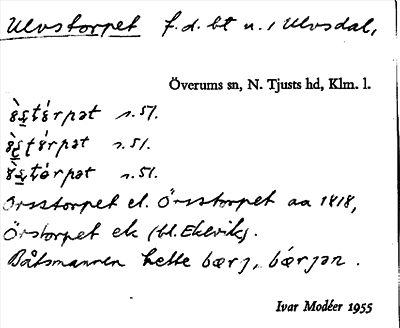 Ulvstorpet f.d. bt u. / Ulvsdal,
Överums sn, N. Tjusts hd, Klm. l.
s. 51.
s. 51.
s. 51.
Orsstorpet el. Örsstorpet aa 1818,
Örstorpet ek (bl. Ekevik).
Båtsmannen hette bærj, bǽrjən.
Ivar Modéer 1955